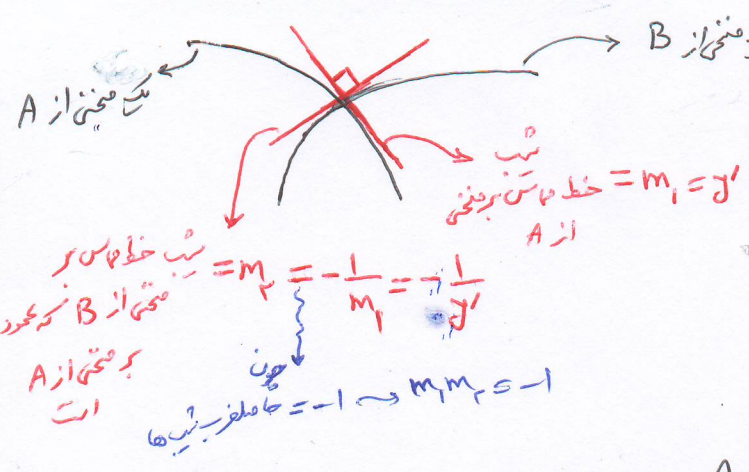 یک منحنی از A
منحنی از B
شیب
خط مماس بر منحنی = m₁ = y'
از A
شیب خط مماس بر
منحنی از B که عمود
بر منحنی از A
است
= m₂ = -1/m₁ = -1/y'
چون
حاصلضرب شیب‌ها = -1 → m₁m₂ = -1